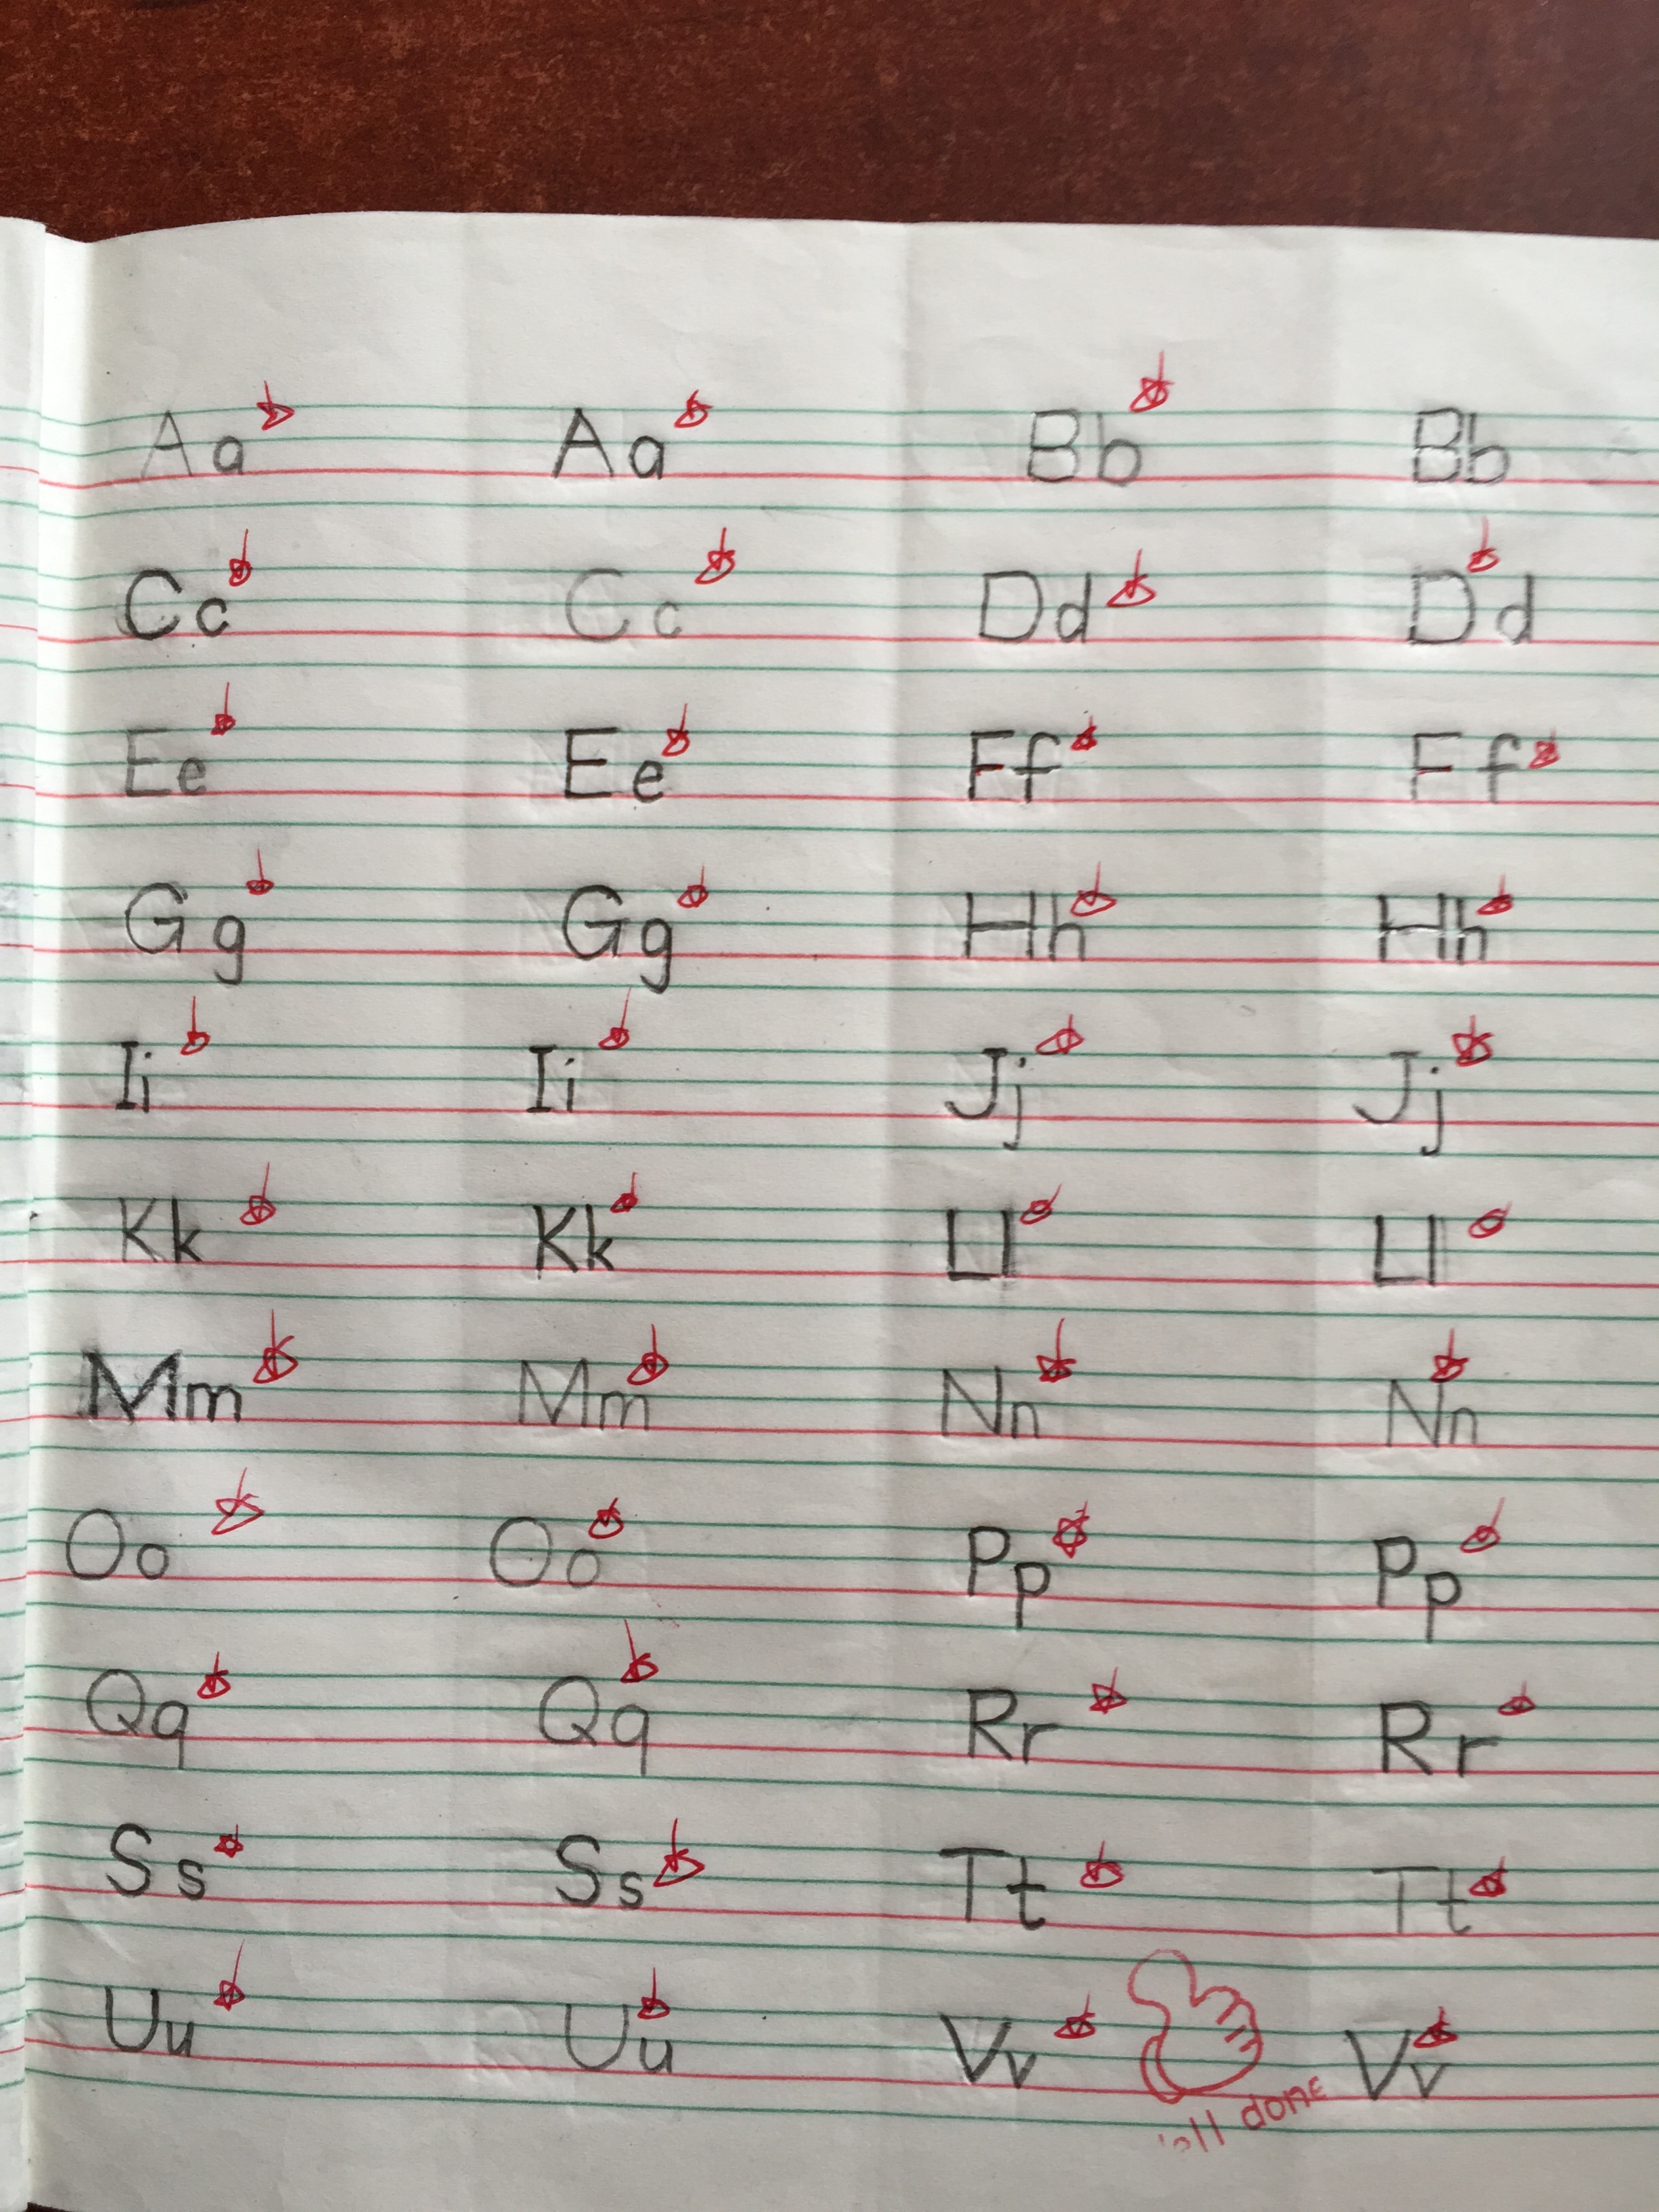 Aa Aa Bb Bb
Cc Cc Dd Dd
Ee Ee Ff Ff
Gg Gg Hh Hh
Ii Ii Jj Jj
Kk Kk Ll Ll
Mm Mm Nn Nn
Oo Oo Pp Pp
Qq Qq Rr Rr
Ss Ss Tt Tt
Uu Uu Vv Vv
done